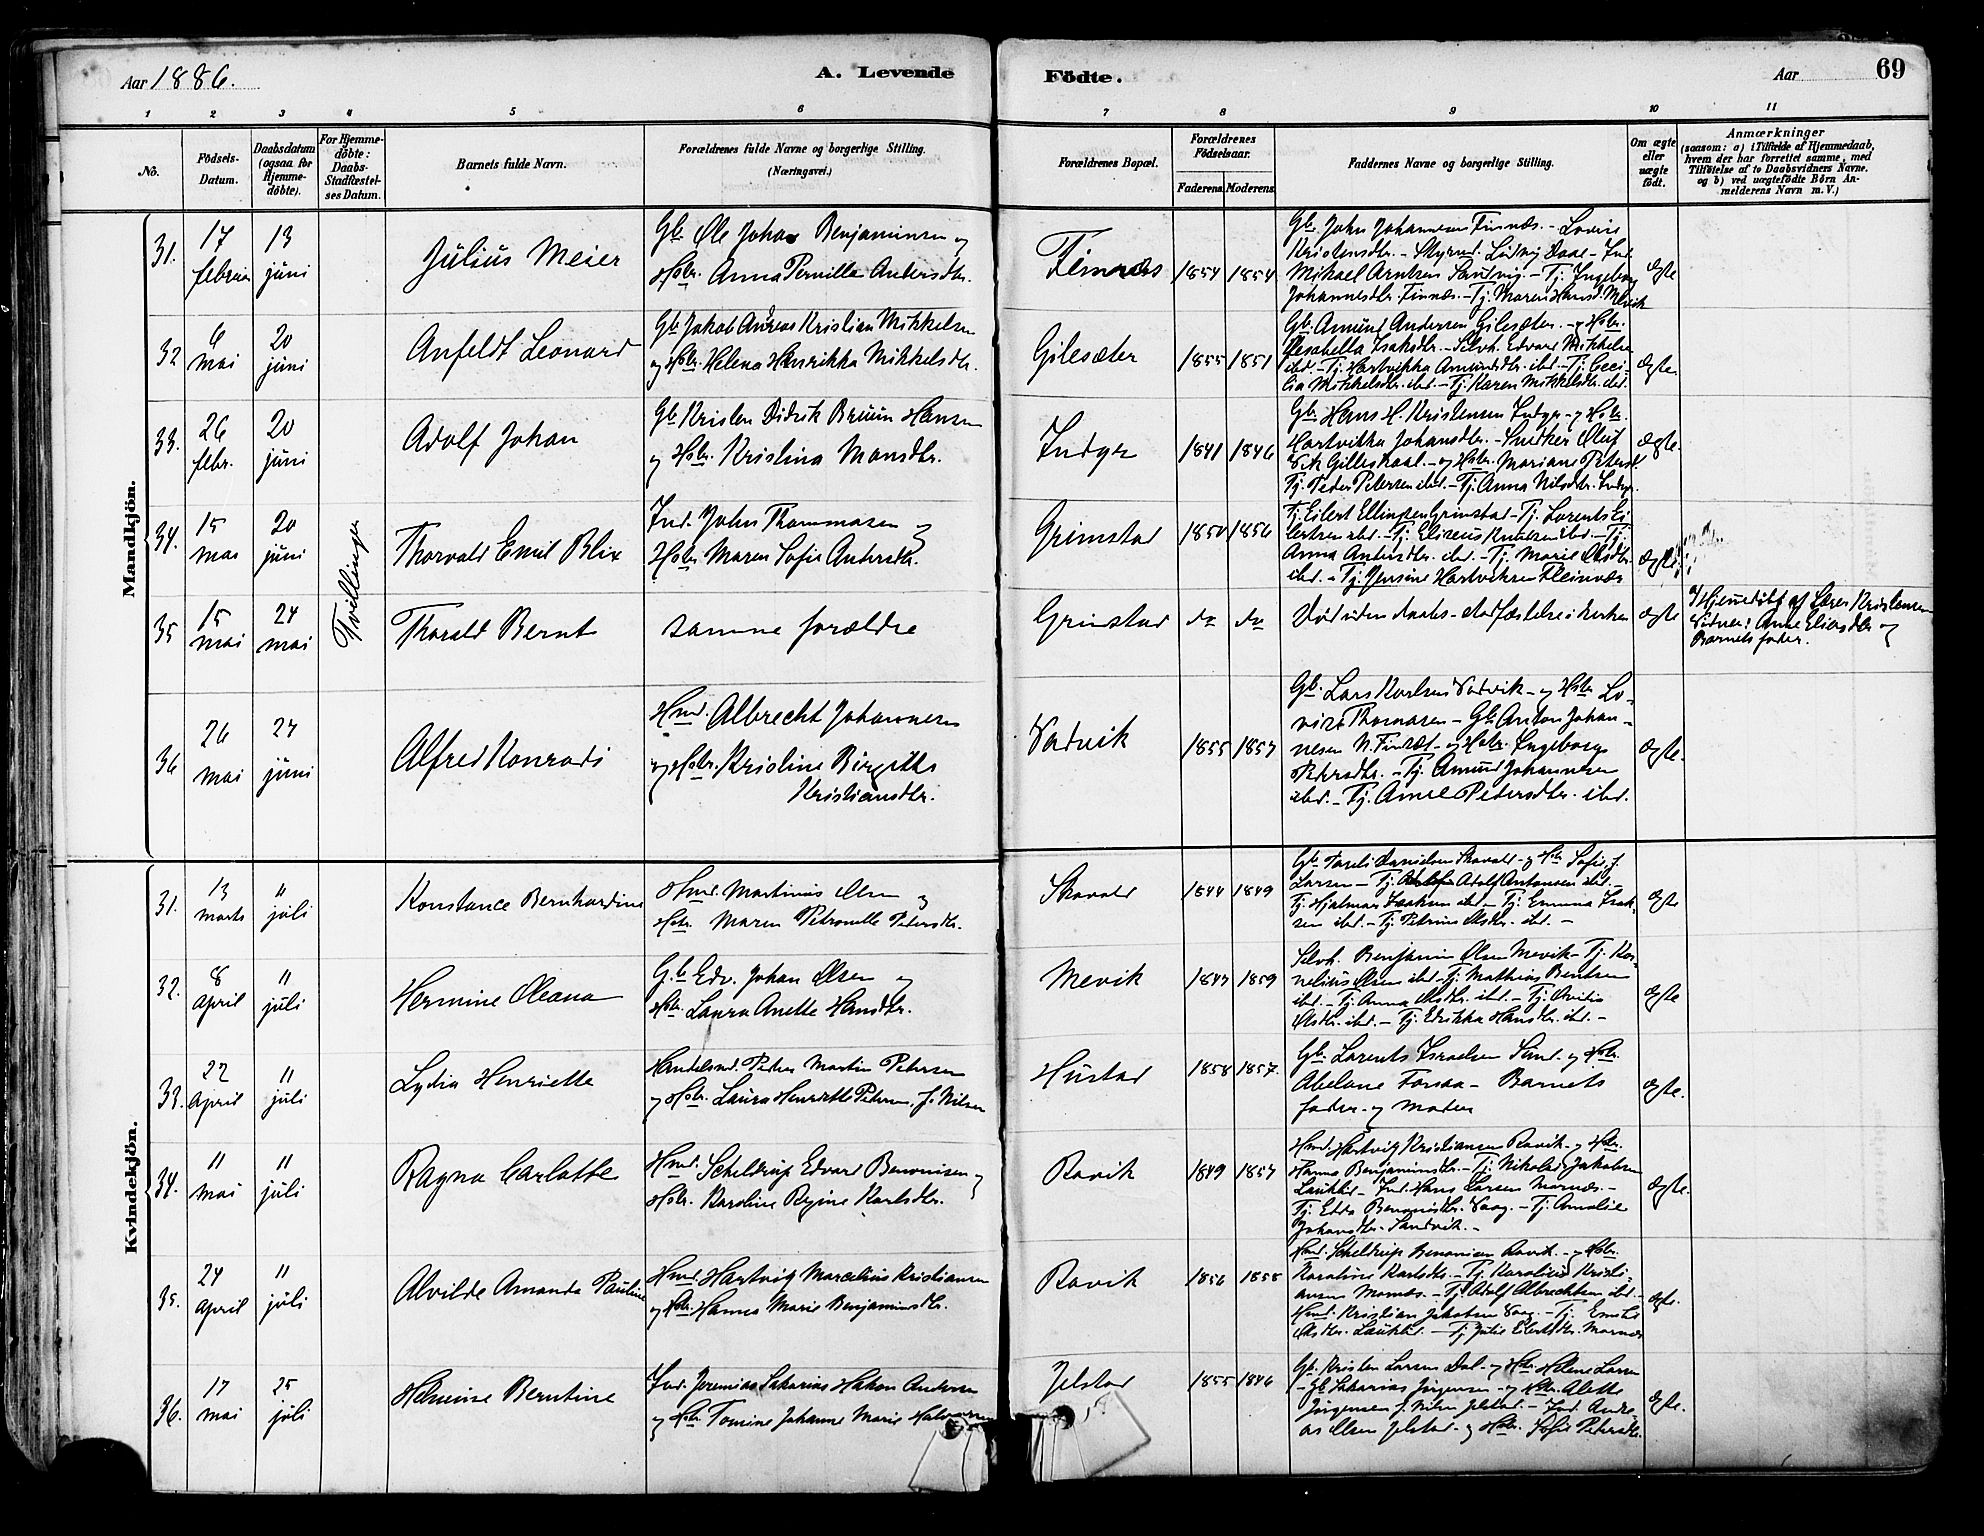 Aar 1886.
A. Levende
Födte.
Aar
69
1 2 3 4 5 6 7 8 9 10 11
No.
Födsels-
Datum.
Daabsdatum
(ogsaa for
Hjemme-
döbte).
For Hjemme-
döbte:
Daabs-
Stadfæstel-
ses Datum.
Barnets fulde Navn.
Forældrenes fulde Navne og borgerlige Stilling.
(Næringsvei.)
Forældrenes Bopæl.
Forældrenes
Födselsaar.
Faderens. Moderens.
Faddernes Navne og borgerlige Stilling.
Om ægte
eller
uægte
födt.
Anmærkninger
(saasom: a) i Tilfælde af Hjemmedaab,
hvem der har forrettet samme, med
Tilföielse af to Daabsvidners Navne.
og b) ved uægtefödte Börn An-
melderens Navn m. V.)
Mandkjön.
31.
17
februar
13
juni
Julius Meier
Gb. Ole Johan Benjaminsen og
Hstr. Anna Pernilla Andersdtr.
Finnæs
1854 1854
Gb. John Johannesen Finnæs. - Lovise
Kristensdtr. - Ludvig - Ind.
Mikael Arntsen Sandvig. - Tj. Ingeborg
Johannesdtr. Finnæs. - Tj. Maren Hansd. Mevik
ægte
32
6
mai
20
juni
Anfeldt Leonard
Gb. Jakob Andreas Kristian Mikkelsen
og Hstr. Helena Henrikka Mikkelsdtr.
Gilesæter
1855 1851
Gb. Amund Andersen Gilesæter. - og Hstr.
Isaksdtr. - Selvh. Edvard Mikkelsen
ibd. - Tj. Hartvikka Amundsdtr. ibd. - Tj. Ceci-
lia Mikkelsdtr. ibd. - Tj. Karen Mikkelsdtr. ibd.
ægte.
33.
26
febr.
20
juni
Adolf Johan
Gb. Kristen Didrik Bruun Hansen
og Hstr. Kristina Monsdtr.
Indyr
1841 1846
Gb. Hans H. Kristensen Indyr - og Hstr.
Hartvikka Johansdtr. - Snedker Oluf
Gilleskaal. - og Hstr. Mariane Petersd.
Tj. Peder Petersen ibd. - Tj. Anna Nilsdtr. Indyr.
ægte.
34.
15
mai
20
juni
Tvillinger
Thorvald Emil Blix
Ind. John Thommasen og
Hstr. Maren Sofie Andersdtr.
Grimstad
1850 1856
Tj. Eilert Ellingsen Grimstad - Tj. Lorents Ei-
lertsen ibd. - Tj. Eliseus Knudsen ibd. - Tj.
Anna Andersdtr. ibd. - Tj. Marie Olsdtr.
ibd. - Tj. Jensine Hartviksen Fleinvær
ægte.
35
15
mai
24
mai
Thorald Bernt
samme forældre
Grimstad
do do
Död uden daabs-stadfæstelse i kirken
ægte
a/ Hjemmedöbt af Lærer Kristensen
Vidner: Anne Eliasdtr og
Barnets fader.
36
26
mai
27
juni
Alfred Konradi
Hmd. Albrecht Johannesen
og Hstr. Kristine Birgitte
Kristiansdtr.
Sadvik
1855 1857
Gb. Lars Karlsen Sadvik - og Hstr Lo-
vise Thomasen - Gb. Anton Johan-
nesen N. Finsæt - og Hstr. Ingeborg
Petersdtr. - Tj. Amund Johannesen
ibd. - Tj. Anne Petersdtr. ibd.
ægte.
Kvindekjön.
31.
13
marts
11
juli
Konstance Bernhardine
Hmd. Martinus Olsen og
Hstr. Maren Petronelle Petersdtr.
Skavald
1844 1849
Gb. Danielsen Skavald - og Hstr Sofie, f.
Larsen - Tj. Adolf Antonsen ibd. -
Tj. Hjalmar Isaksen ibd. - Tj. Emma Isak-
sen ibd. - Tj. Petrine Olsdtr. ibd. -
ægte
32.
8
april
11
juli
Hermine Oleana
Gb. Edv. Johan Olsen og
Hstr. Laura Anette Hansdtr.
Mevik
1847 1859
Selvh. Benjamin Olsen Mevik - Tj. Kor-
nelius Olsen ibd. - Tj. Mathias Bentsen
ibd. - Tj. Anna Olsdtr. ibd. - Tj.
Olsdtr. ibd. - Tj. Edrikka Hansdtr. ibd. -
ægte
33.
22
april
11
juli
Lydia Henriette
Handelsmd. Peder Martin Petersen
og Hstr. Laura Henriette Petersen, f. Nilsen
Hustad
1858 1857.
Gb. Lorents Israelsen Sund - og Hstr.
Abelone Forsaa - Barnets
fader - og moder
ægte.
34.
11
mai
11
juli
Ragna Carlotte
Hmd. Scheldrup Edvard Benonisen og
Hstr. Karoline Regine Karlsdtr.
Ravik
1849 1857
Hmd. Hartvig Kristiansen Ravik - og Hstr.
Hanna Benjaminsdtr. - Tj. Nikolai Jakobsen
Lauklid - Ind. Hans Larsen Mornæs. -
Tj. Edda Benonisdtr. Vaag. - Tj. Amalie
Johansdtr. Sandvik. -
ægte.
35.
24
april
11
juli
Alvilde Amanda Pauline
Hmd. Hartvig Marcelius Kristiansen
og Hstr. Hanna Marie Benjaminsdtr.
Ravik
1856 1858
Hmd. Scheldrup Benonisen Ravik. - og Hstr.
Karoline Karlsdtr. - Tj. Karolius Kristi-
ansen Mornæs. - Tj. Adolf Albrechtsen ibd. -
Hmd. Kristian Jakobsen Vaag. - Tj. Emilie
Olsdtr. Lauklid. - Tj. Julie Eilertsdtr. Mornæs
ægte.
36.
17
mai
25
juli
Helmine Berntine
Ind. Jeremias Sakarias Hakon Andersen
og Hstr. Tomine Johanne Marie Halvorsen
Jelstad
1855 1846
Gb. Kristen Larsen Dal - og Hstr. Helene Larsen
- Gb. Sakarias Jörgensen - og Hstr. Alette
Jörgensen f. Nilsen Jelstad. - Ind. Andre-
as Olsen Jelstad - og Hstr. Sofie Petersdtr.
ægte.